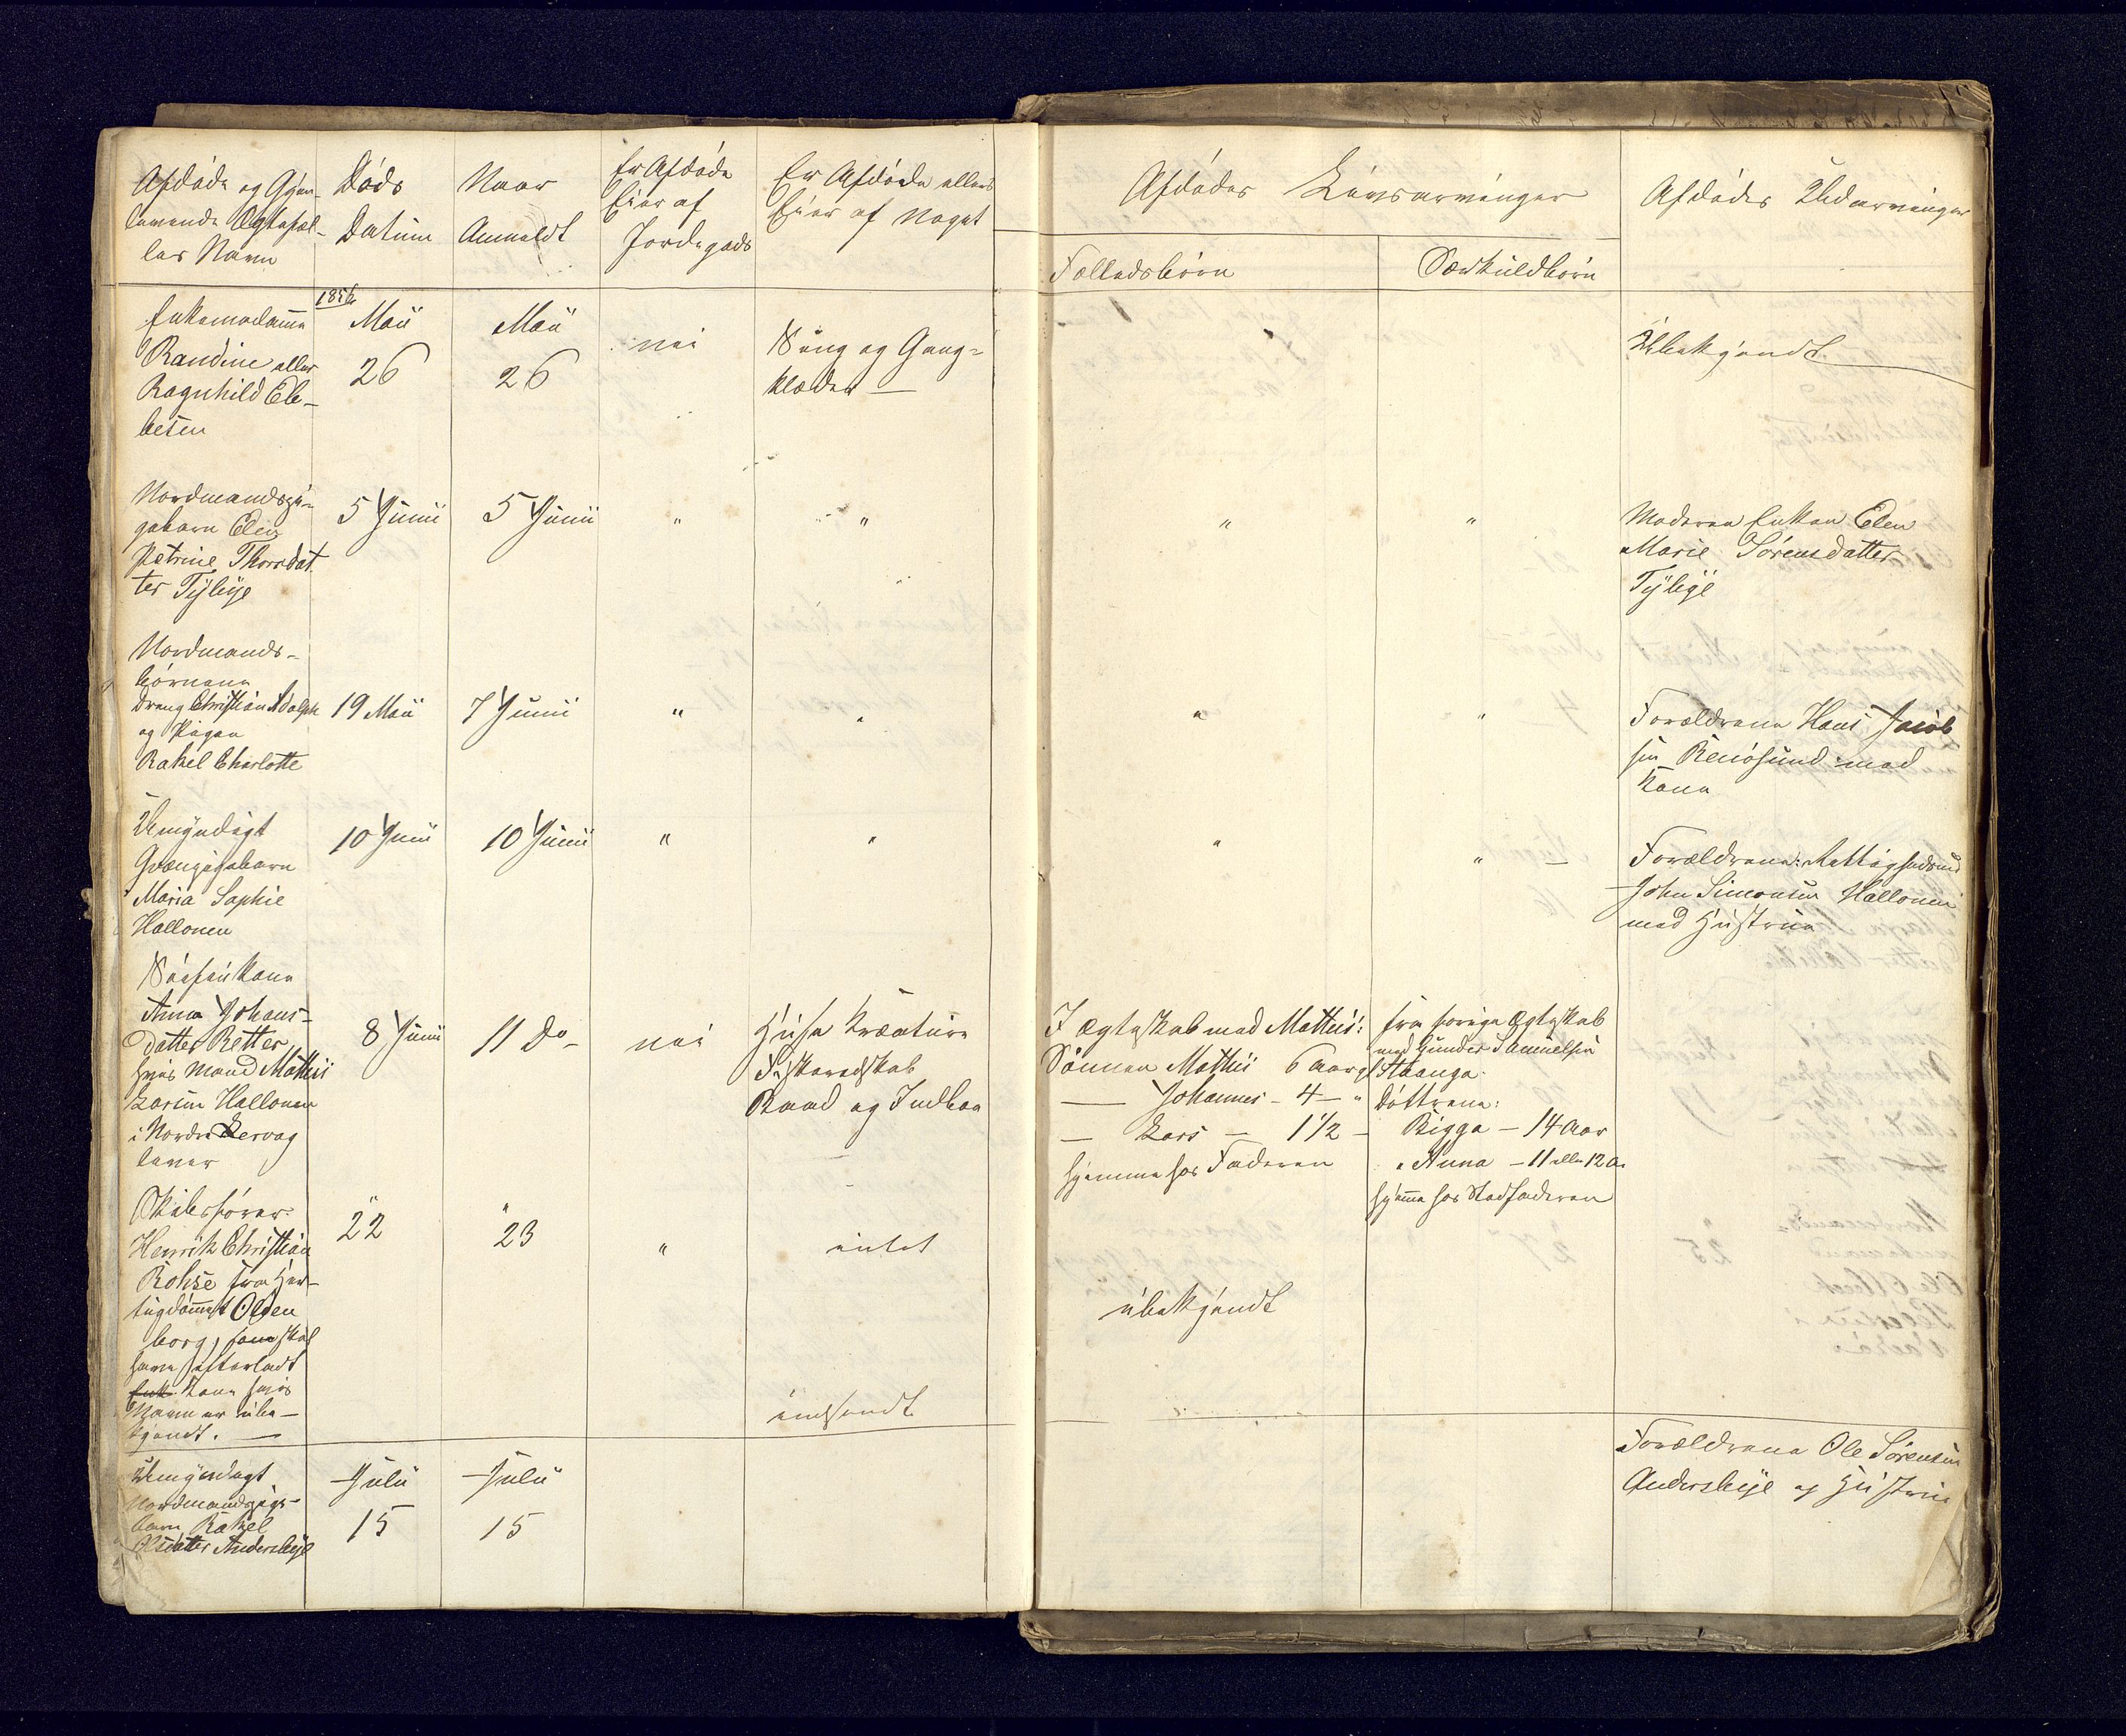 Afdøde og Gjen-
levende Ægtefæl-
les Navn
Døds
Datum
Naar
Anmeldt
Er Afdøde
Eier af
Jordegods
Er Afdøde ellers
Eier af Noget
Afdødes Livsarvinger
Fælledsbørn
Særkuldbørn
Afdødes Udarvinger
Enkemadame
Randine eller
Ragnhild Ebe-
besen
1856
Maii
26
Maii
26
nei
Seng og Gang-
klæder —
Ubekjendt
Nordmandspi-
gebarn Elen
Petrine Thorsdat
ter Tÿbeye
5 Junii
5 Junii
"
"
"
"
Moderen Enken Elen
Marie Sørensdatter
Tÿbeye
Nordmands-
børnene
Dreng Christian Adolph
og Pigen
Rakel Charlotte
19 Maii
7 Junii
"
"
"
"
Forældrene Hans Jacob
sen Renøsund med
Kone
Umyndigt
Qvængigebarn
Maria Sophie
Hallonen
10 Junii
10 Junii
"
"
"
" —
Forældrene:
John Simonsen Hallonen
med Hustrue
Søefinkone
Anna Johans-
datter Retter,
hvis Mand Mathis
Larsen Hallonen
i Nordre Lervog
lever
8 Junii
11 Do-
nei
Huse Kreature
Fiskeredskab
Baad og Indboe
I Ægteskab med Mathis:
Sønnen Mathis 6 Aar gl
— Johannes - 4 — "
— Lars — 1 1/2 -
hjemme hos Faderen
fra forrige Ægteskab
med Gunder Samuelsen
Staanga.
Døttrene:
Bigga — 14 Aar
" Anna — 11 eller 12 A.
hjeme hos Stedfaderen
Skibsfører
Henrik Christian
Rohse fra Her-
tugdømet Olden
borg, som skal
have efterladt
Enk Kone hvis
Navn er ube-
kjendt. —
"
22
"
23
"
intet
ubekjendt
indsendt
Umyndigt
Nordmandspige-
barn Rakel
Olsdatter Andersbye
Julii
15
Julii
15
Forældrene Ole Sørensen
Andersbye og Hustrue